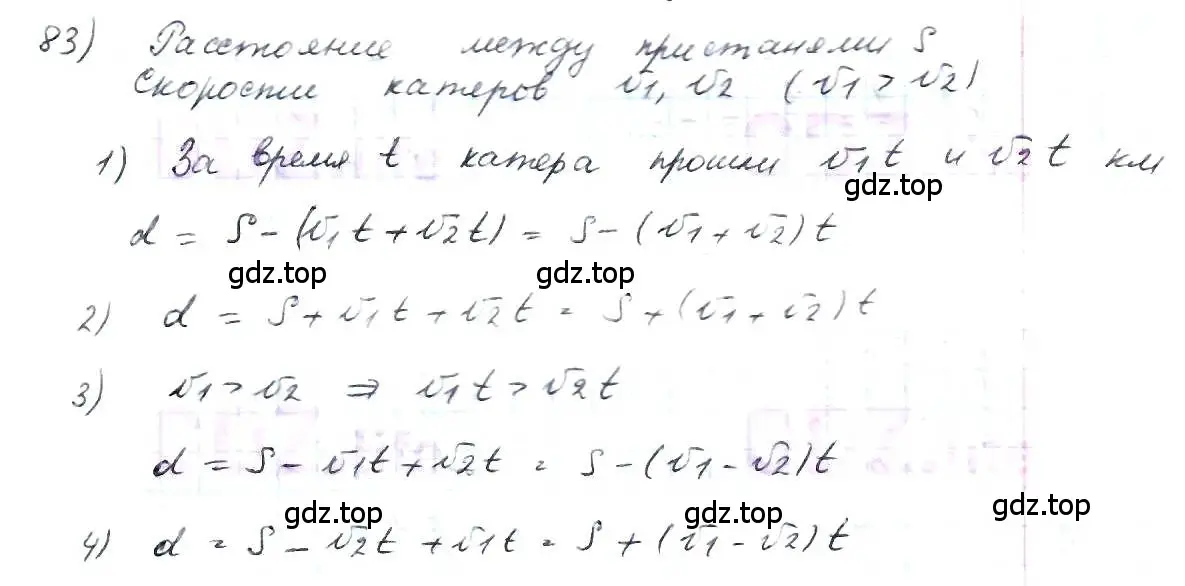 83) Расстояние между пристанями S
Скорости катеров v1, v2 (v1 > v2)
1) За время t катера прошли v1t и v2t км
gdz.top
d = S - (v1t + v2t) = S - (v1 + v2)t
gdz.top gdz.top
2) d = S + v1t + v2t = S + (v1 + v2)t
3) v1 > v2 ⇒ v1t > v2t
d = S - v1t + v2t = S - (v1 - v2)t
gdz.top gdz.top gdz.top
4) d = S - v2t + v1t = S + (v1 - v2)t